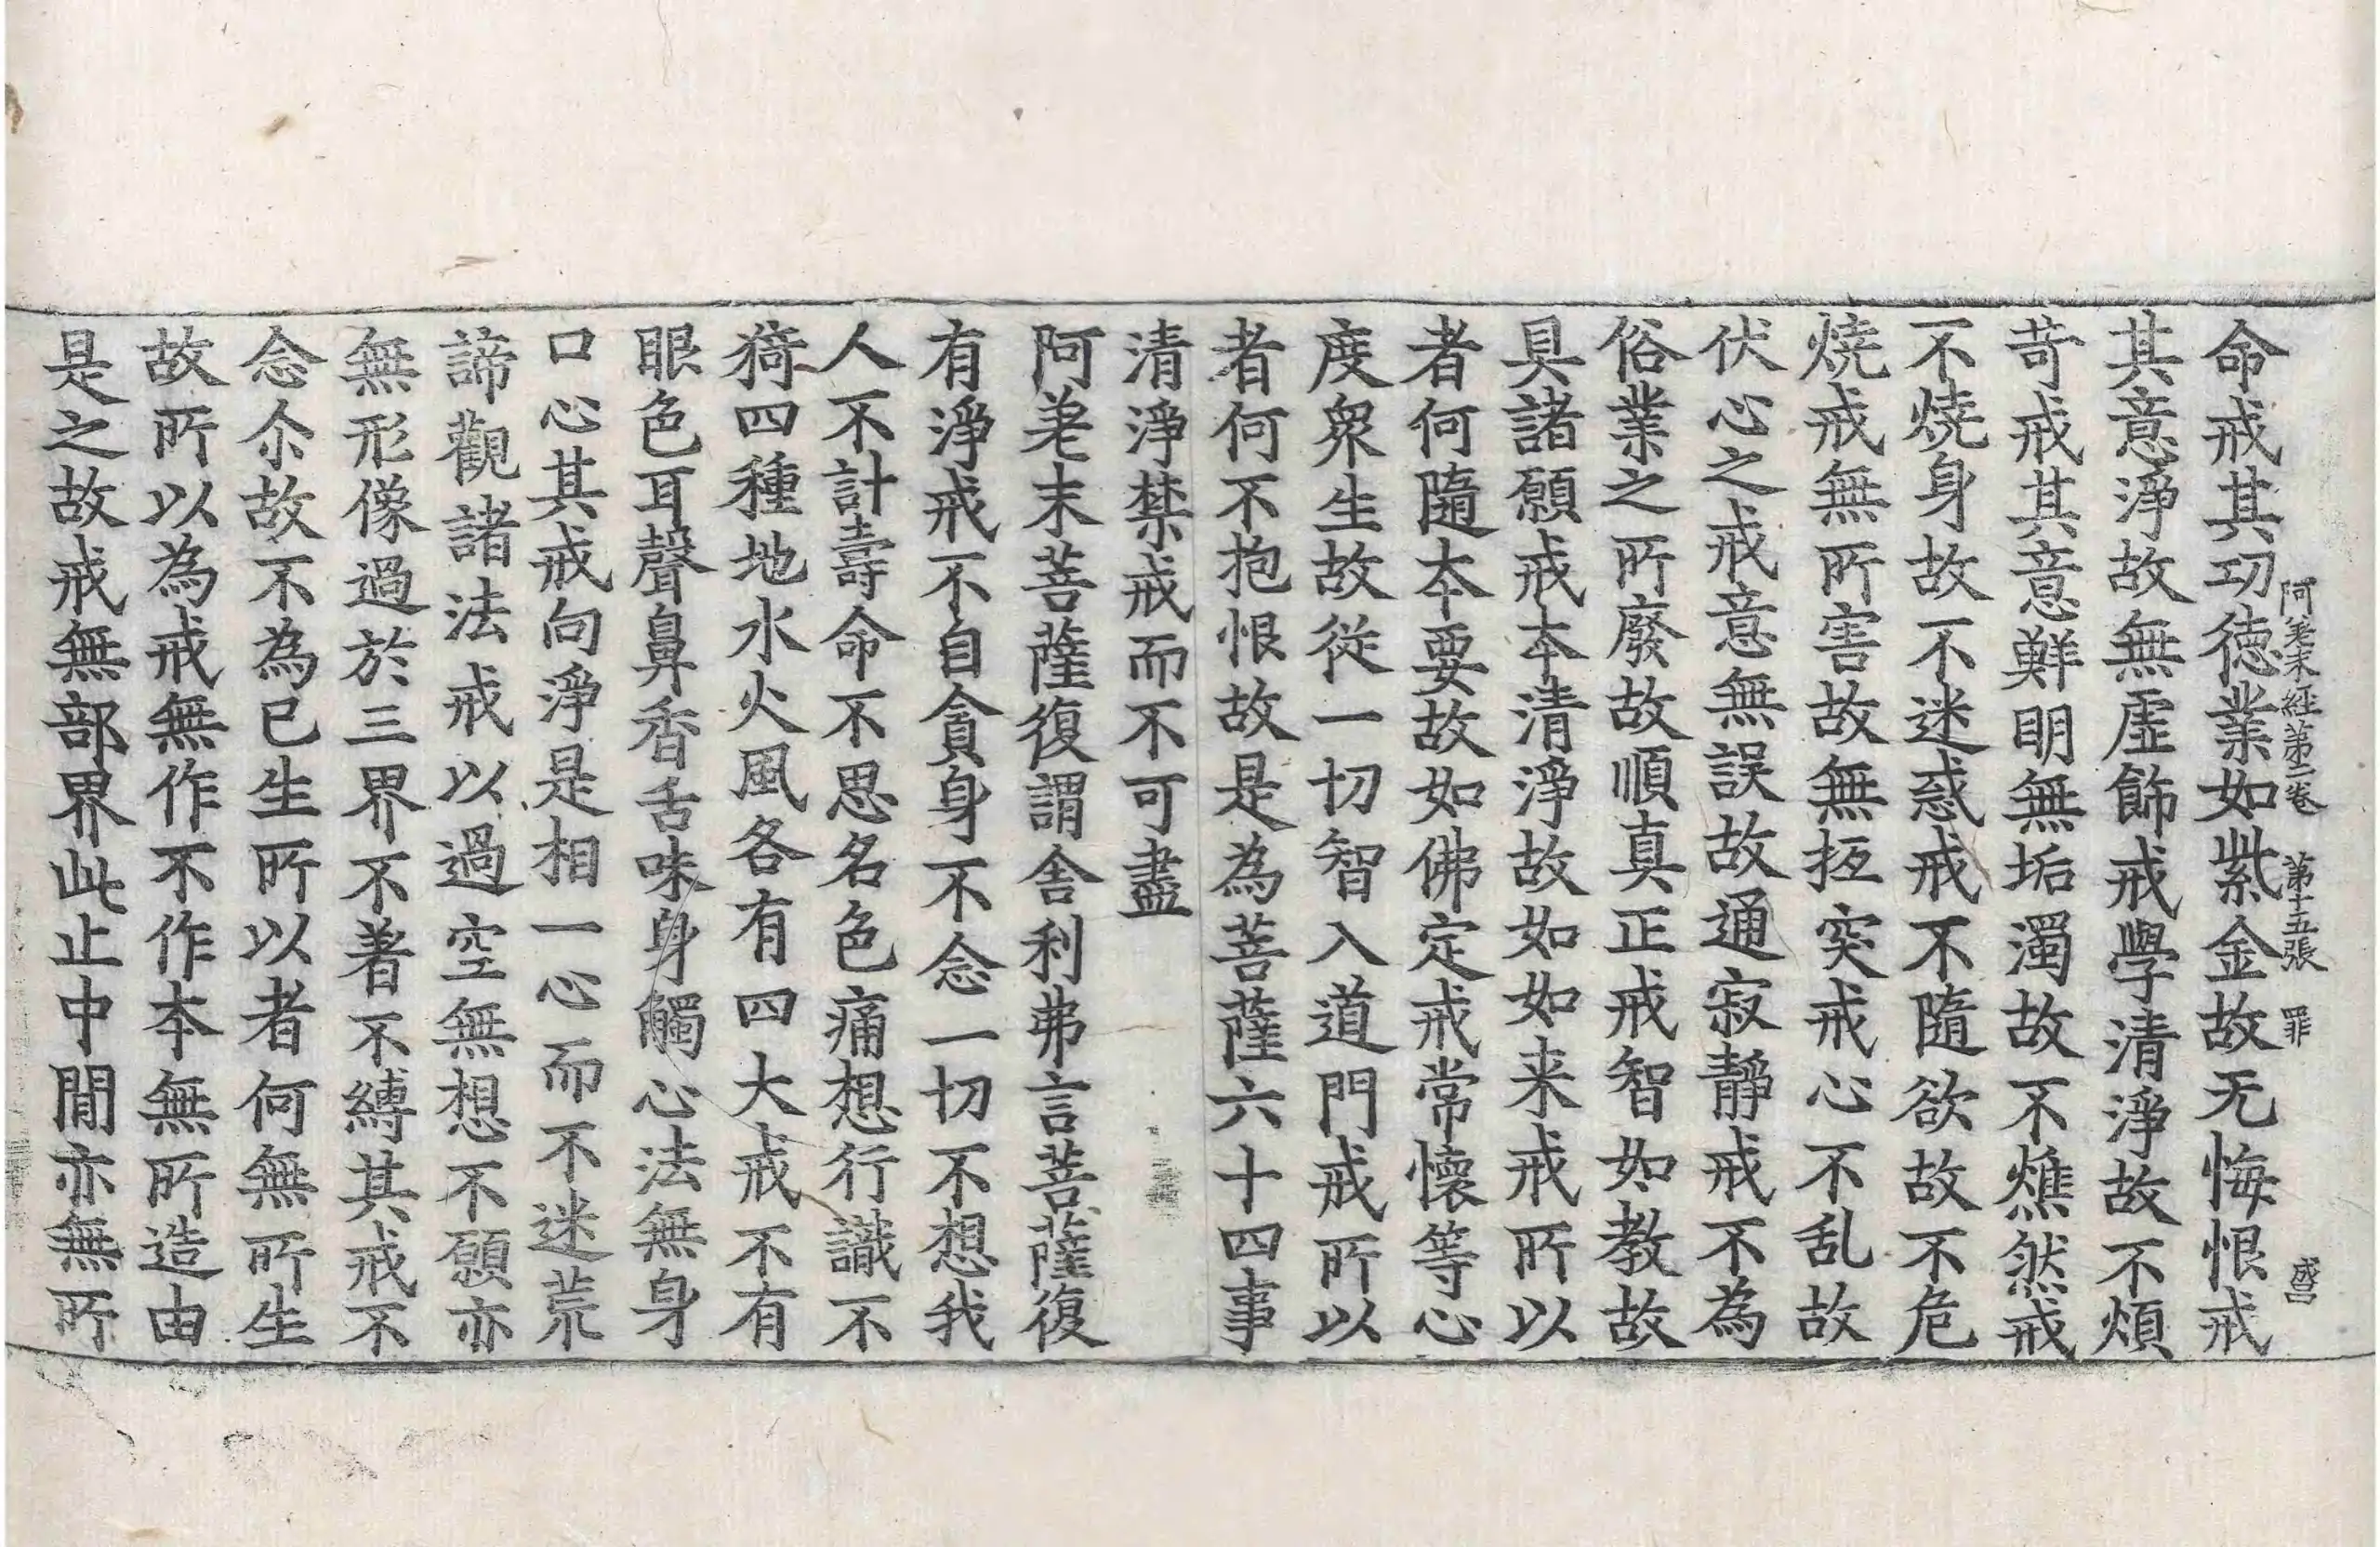 阿差末經第二卷 第十五張 罪 盛昌
命戒其功德業如紫金故无悔恨戒
其意淨故無虛飾戒學清淨故不煩
苛戒其意鮮明無垢濁故不燋然戒
不燒身故不迷惑戒不隨欲故不危
燒戒無所害故無抂突戒心不乱故
伏心之戒意無誤故通寂靜戒不為
俗業之所廢故順真正戒智如教故
具諸願戒本清淨故如如来戒所以
者何隨本要故如佛定戒常懷等心
度衆生故從一切智入道門戒所以
者何不抱恨故是為菩薩六十四事
清淨禁戒而不可盡
阿差末菩薩復謂舍利弗言菩薩復
有淨戒不自貪身不念一切不想我
人不計壽命不思名色痛想行識不
猗四種地水火風各有四大戒不有
眼色耳聲鼻香舌味身觸心法無身
口心其戒向淨是相一心而不迷荒
諦觀諸法戒以過空無想不願亦
無形像過於三界不著不縛其戒不
念尒故不為已生所以者何無所生
故所以為戒無作不作本無所造由
是之故戒無部界此止中間亦無所